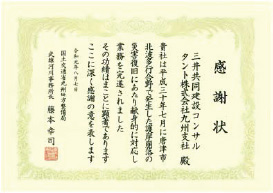 感謝状
三井共同建設コンサル
タント株式会社九州支社 殿
貴社は平成三十年七月に唐津市
北波多行合野で発生した護岸崩落の
災害復旧にあたり献身的に対応し
業務を完遂されました
その功績はまことに顕著であります
ここに深く感謝の意を表します
令和元年八月七日
国土交通省九州地方整備局
武雄河川事務所長 藤本幸司